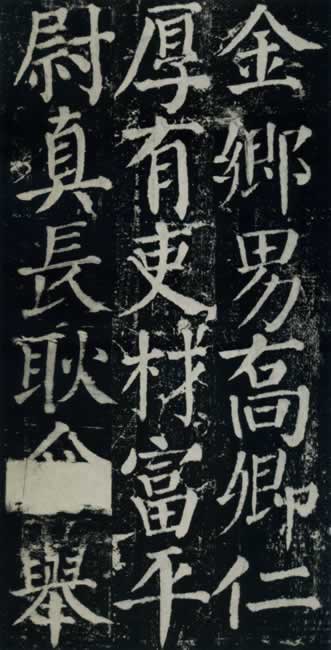 金鄉男喬卿仁
厚有吏材富平
尉真長耿舉